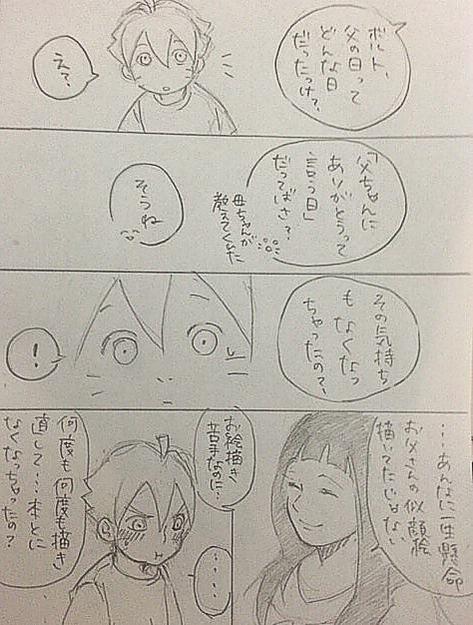 ボルト、
父の日って
どんな日
だったっけ？
え？
「父ちゃんに
ありがとうって
言う日」
だってばさ？
母ちゃんが
教えてくれた
そうね
その気持ち
もなくなっ
ちゃったの？
！
…あんなに一生懸命
お父さんの似顔絵
描いてたじゃない
お絵描き
苦手なのに…
……
何度も何度も描き
直して…本とに
なくなっちゃったの？